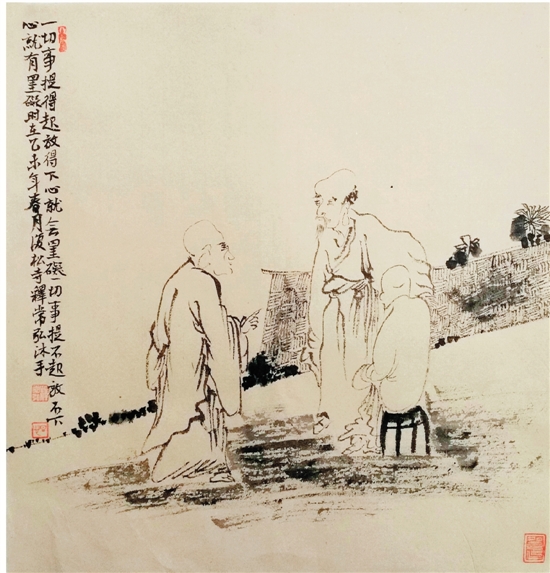 一切事提得起放得下心就罣礙一切事提不起放不下
心就有罣礙时在乙未年春月松寺釋常弘沐手